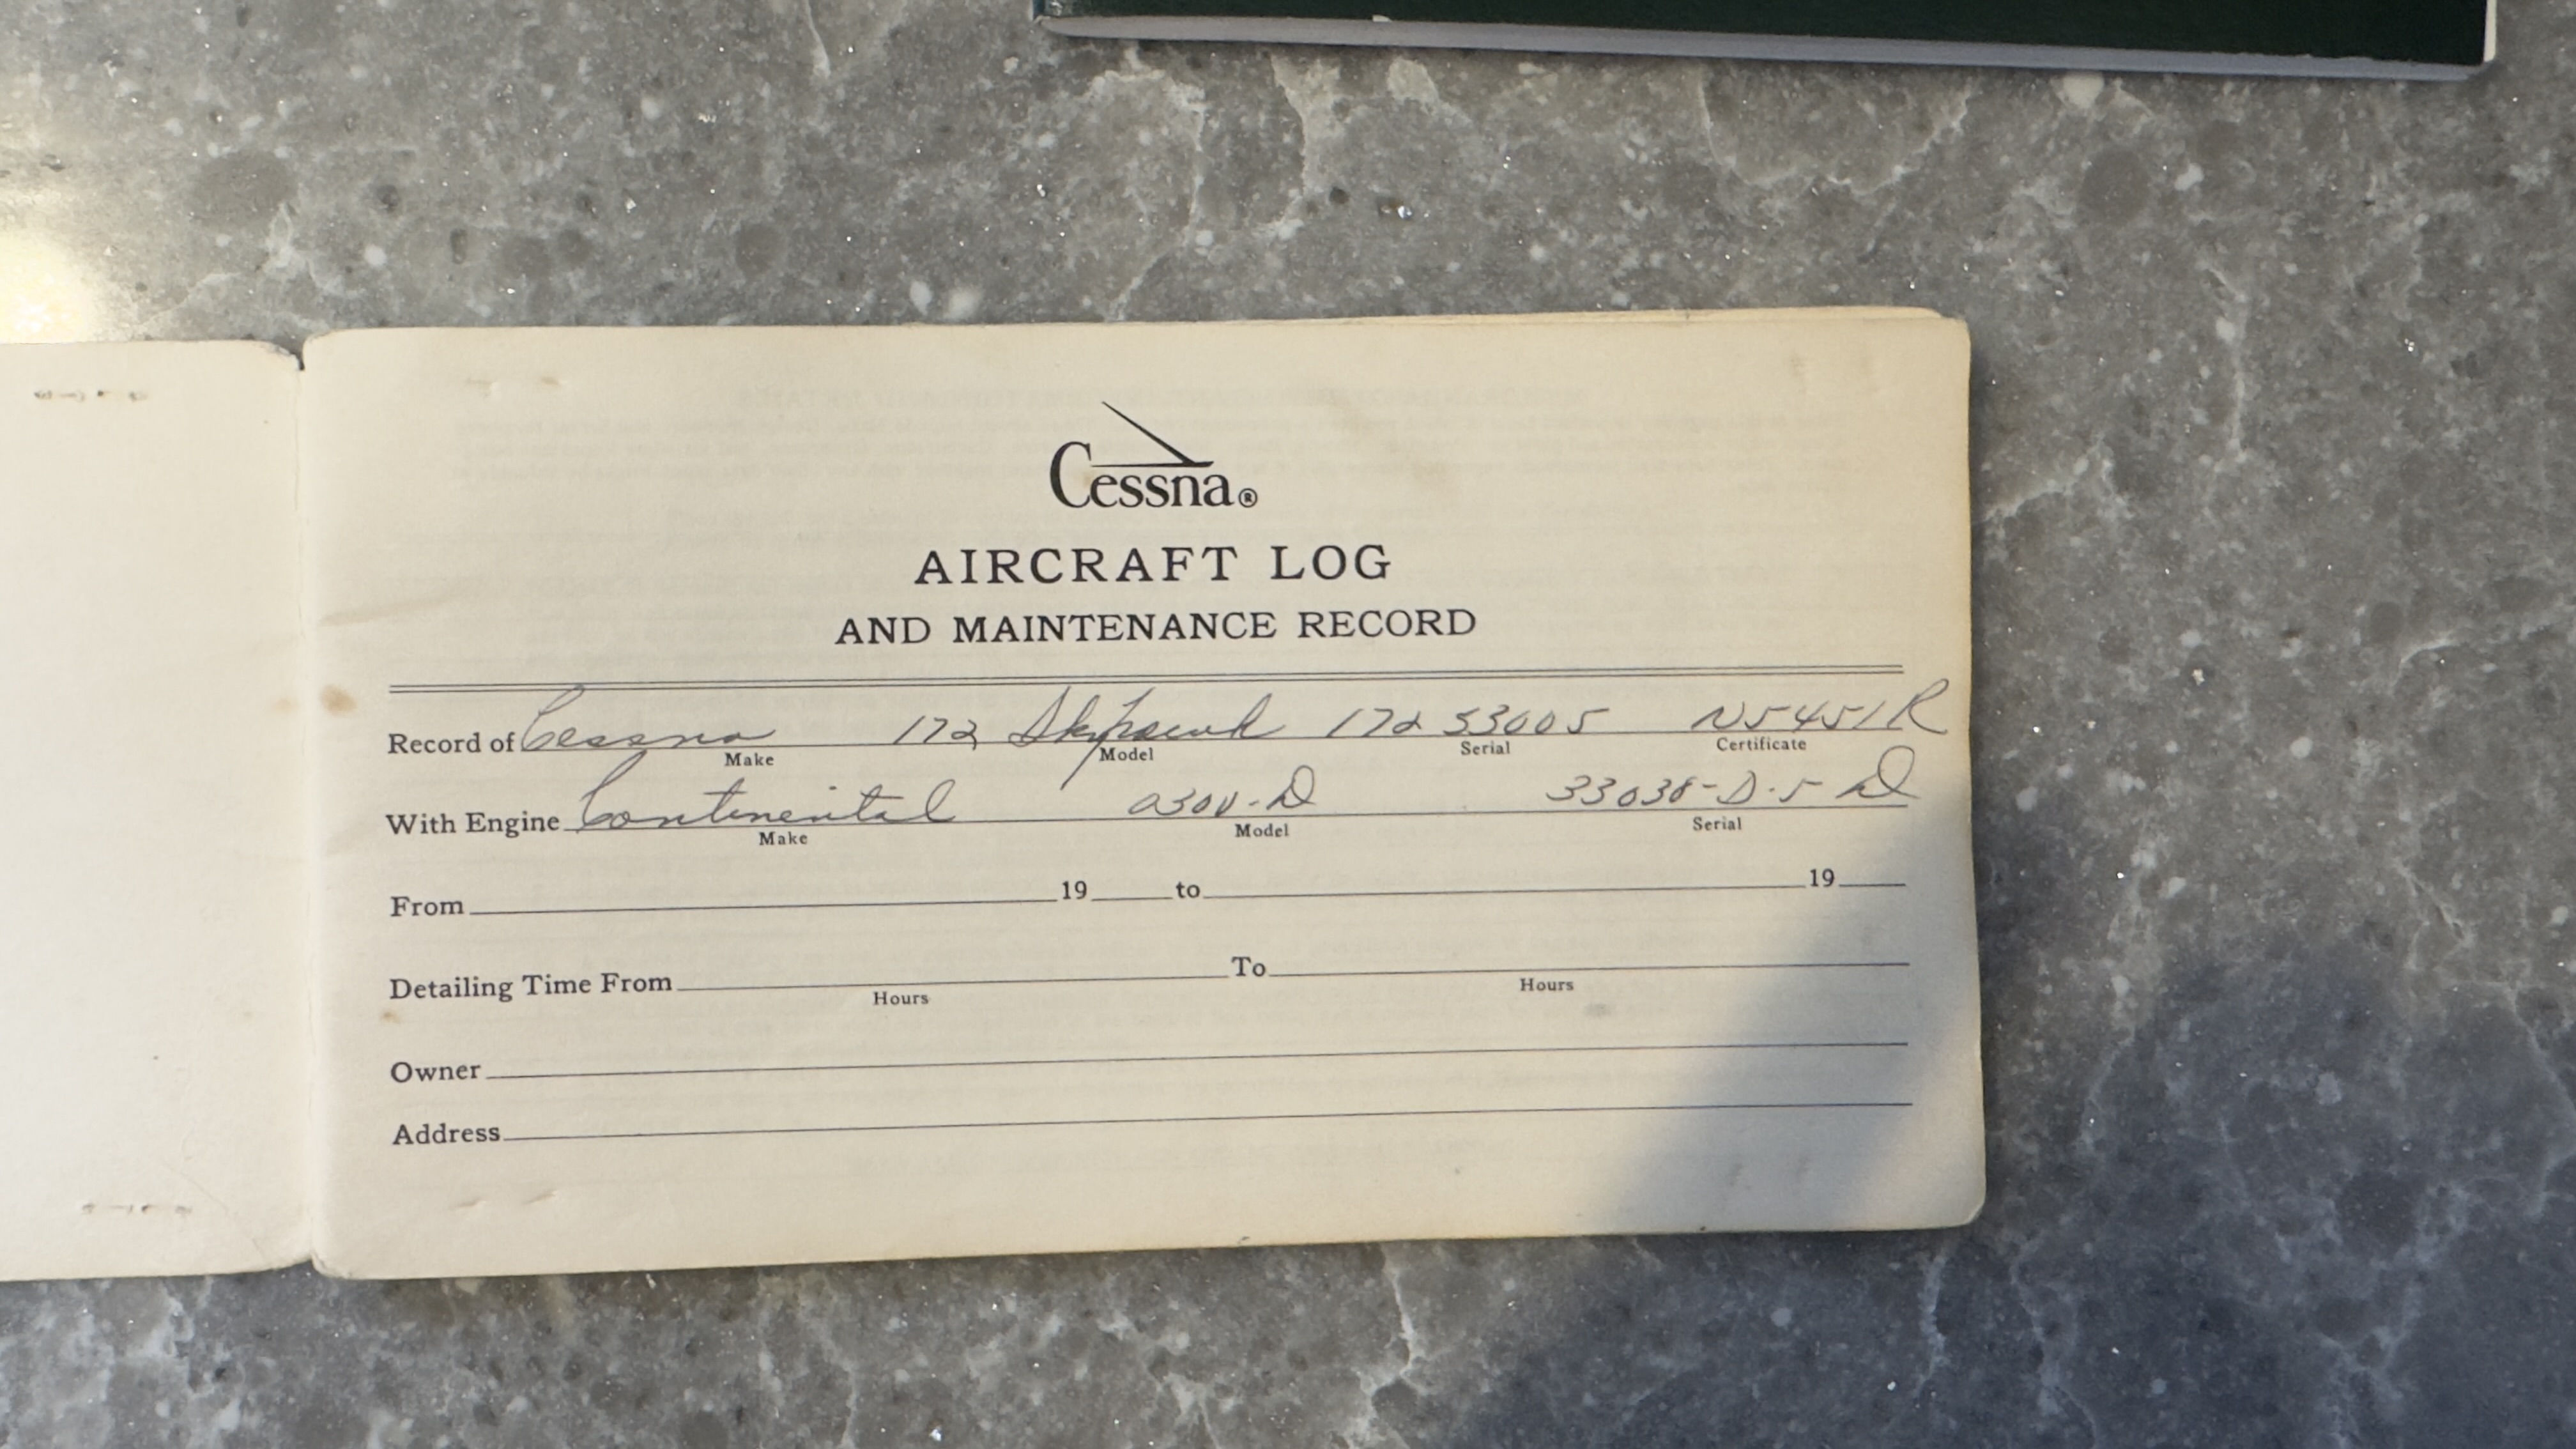 Cessna®
AIRCRAFT LOG
AND MAINTENANCE RECORD
Record of Cessna 172 Skyhawk 172 53005 N5451R
Make Model Serial Certificate
With Engine Continental O300-D 33038-D-5-D
Make Model Serial
From 19 to 19
Detailing Time From To
Hours Hours
Owner
Address